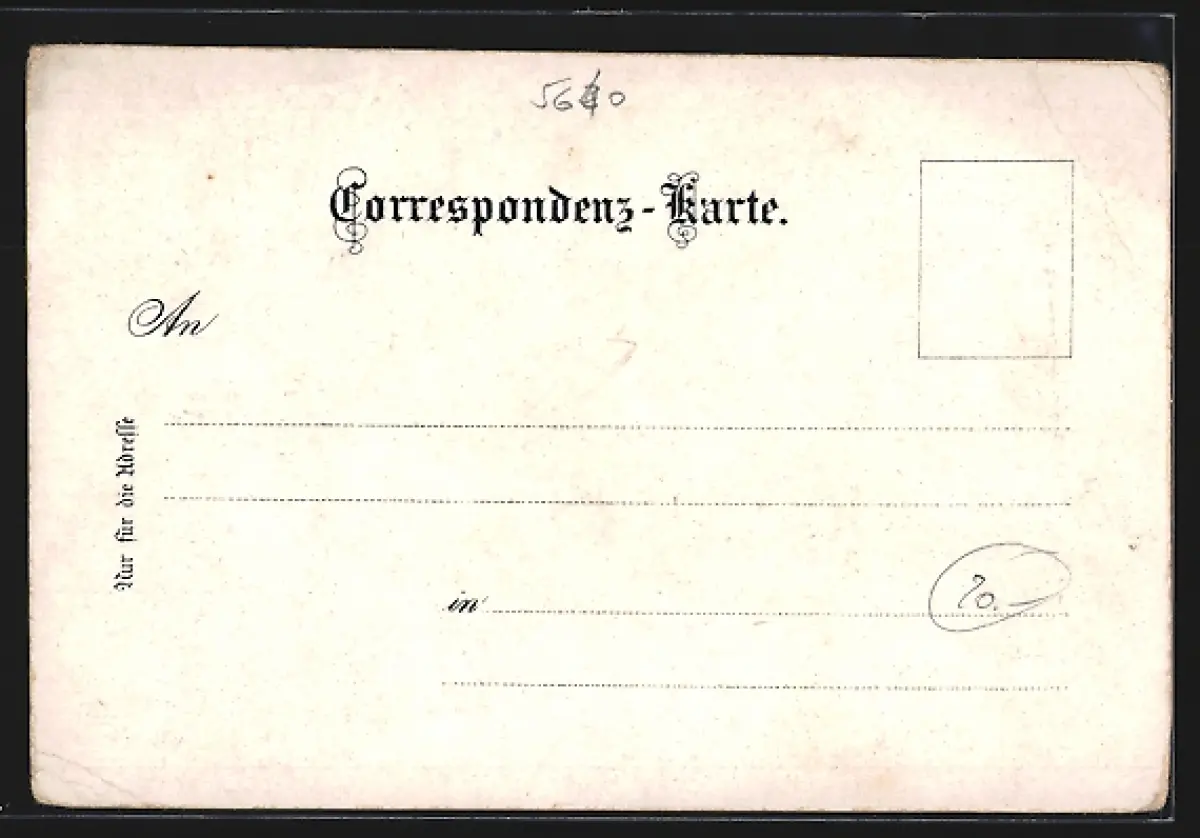 Correspondenz-Karte.
An
Nur für die Adresse
in